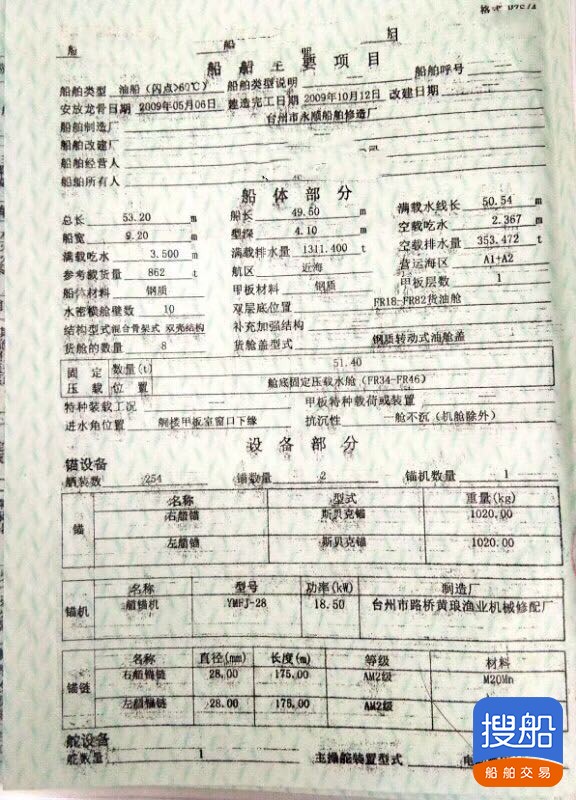 格式
船舶主要项目
船舶类型 油船(闪点>60℃) 船舶类型说明 船舶呼号
安放龙骨日期 2009年05月06日 建造完工日期 2009年10月12日 改建日期
船舶制造厂 台州市永顺船舶修造厂
船舶改建厂
船舶经营人
船舶所有人
船体部分
总长 53.20 m 船长 49.50 m 满载水线长 50.54 m
船宽 9.20 m 型深 4.10 m 空载吃水 2.367 m
满载吃水 3.500 m 满载排水量 1311.400 t 空载排水量 353.472 t
参考载货量 862 t 航区 近海 营运海区 A1+A2
船体材料 钢质 甲板材料 钢质 甲板层数 1
水密横舱壁数 10 双层底位置 FR18-FR82货油舱
结构型式 混合骨架式 双壳结构 补充加强结构
货舱的数量 8 货舱盖型式 钢质转动式油舱盖
固定压载 数量(t) 51.40
位置 舱底固定压载水舱(FR34-FR46)
特种装载工况 甲板特种载荷或装置
进水角位置 艉楼甲板室窗口下缘 抗沉性 一舱不沉(机舱除外)
设备部分
锚设备
舾装数 254 锚数量 2 锚机数量 1
锚 名称 型式 重量(kg)
右艏锚 斯贝克锚 1020.00
左艏锚 斯贝克锚 1020.00
锚机 名称 型号 功率(kW) 制造厂
艏锚机 YMFJ-28 18.50 台州市路桥黄琅渔业机械修配厂
锚链 名称 直径(mm) 长度(m) 等级 材料
右艏锚链 28.00 175.00 AM2级 M20Mn
左艏锚链 28.00 175.00 AM2级
舵设备
舵数量 1 主操舵装置型式 电
搜船
船舶交易